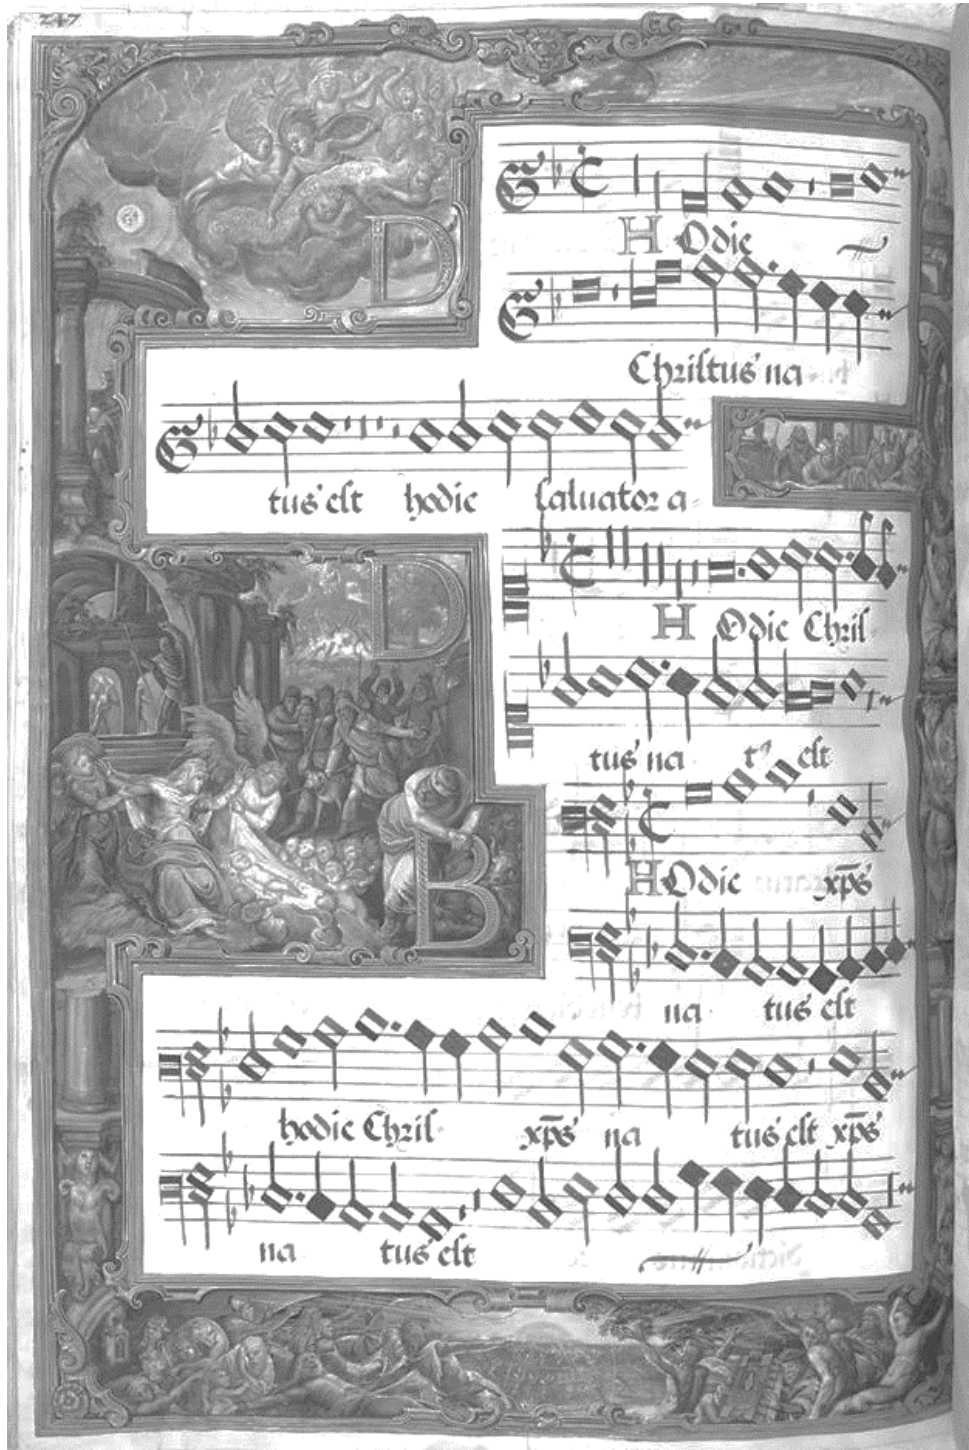 247
D
HOdie
Christus na
tus est hodie saluator a
D
HOdie Chris
tus na t⁹ est
B
HOdie xp̄s
na tus est
hodie Chris xp̄s na tus est xp̄s
na tus est